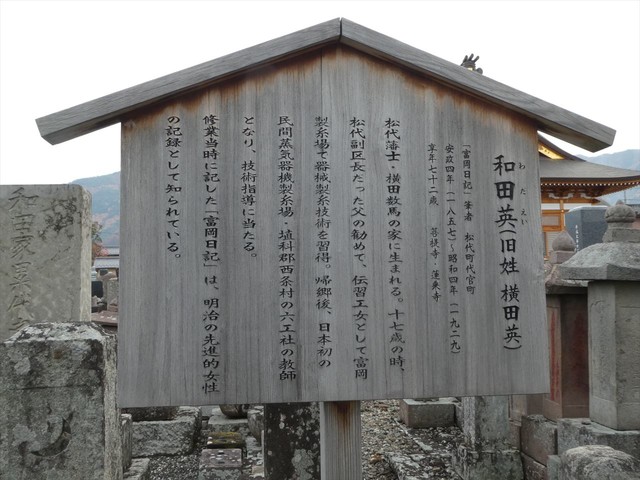 わだえい
和田英(旧姓 横田英)
「富岡日記」筆者 松代町代官町
安政四年(一八五七)～昭和四年(一九二九)
享年七十二歳 菩提寺・蓮乗寺
松代藩士・横田数馬の家に生まれる。十七歳の時、
松代副区長だった父の勧めで、伝習工女として富岡
製糸場で器械製糸技術を習得。帰郷後、日本初の
民間蒸気器機製糸場 埴科郡西条村の六工社の教師
となり、技術指導に当たる。
修業当時に記した「富岡日記」は、明治の先進的女性
の記録として知られている。